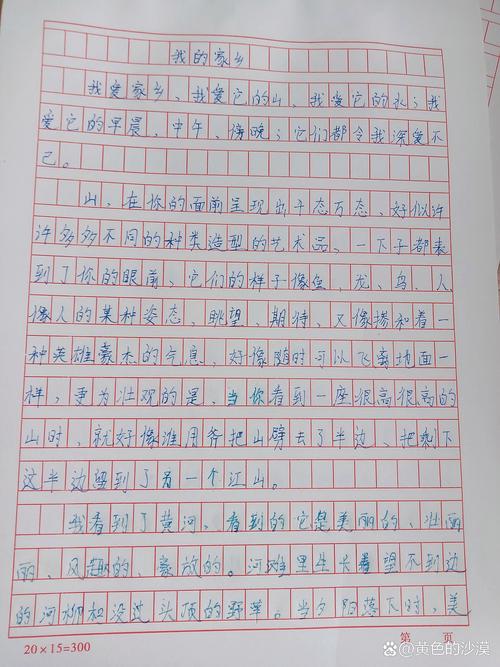 我的家乡
我爱家乡、我爱它的山，我爱它的水；我
爱它的早晨，中午，傍晚；它们都令我深爱不
已。
山，在你的面前呈现出千态万态、好似许
许多多不同的种类造型的艺术品、一下子都来
到了你的眼前、它们的样子像鱼，龙、鸟、人、
像人的某种姿态，眺望、期待、又像掺和着一
种英雄豪杰的气息，好像随时可以飞离地面一
样，更为壮观的是，当你看到一座很高很高的
山时，就好像谁用斧把山劈去了半边、把剩下
这半边望到了另一个江山。
我看到了黄河，看到的它是美丽的、壮丽
丽，风趣的，豪放的。河滩里生长着望不到边
的河柳和没过头顶的野草。当夕阳落下时，美
20×15=300
第 页
@黄色的沙漠